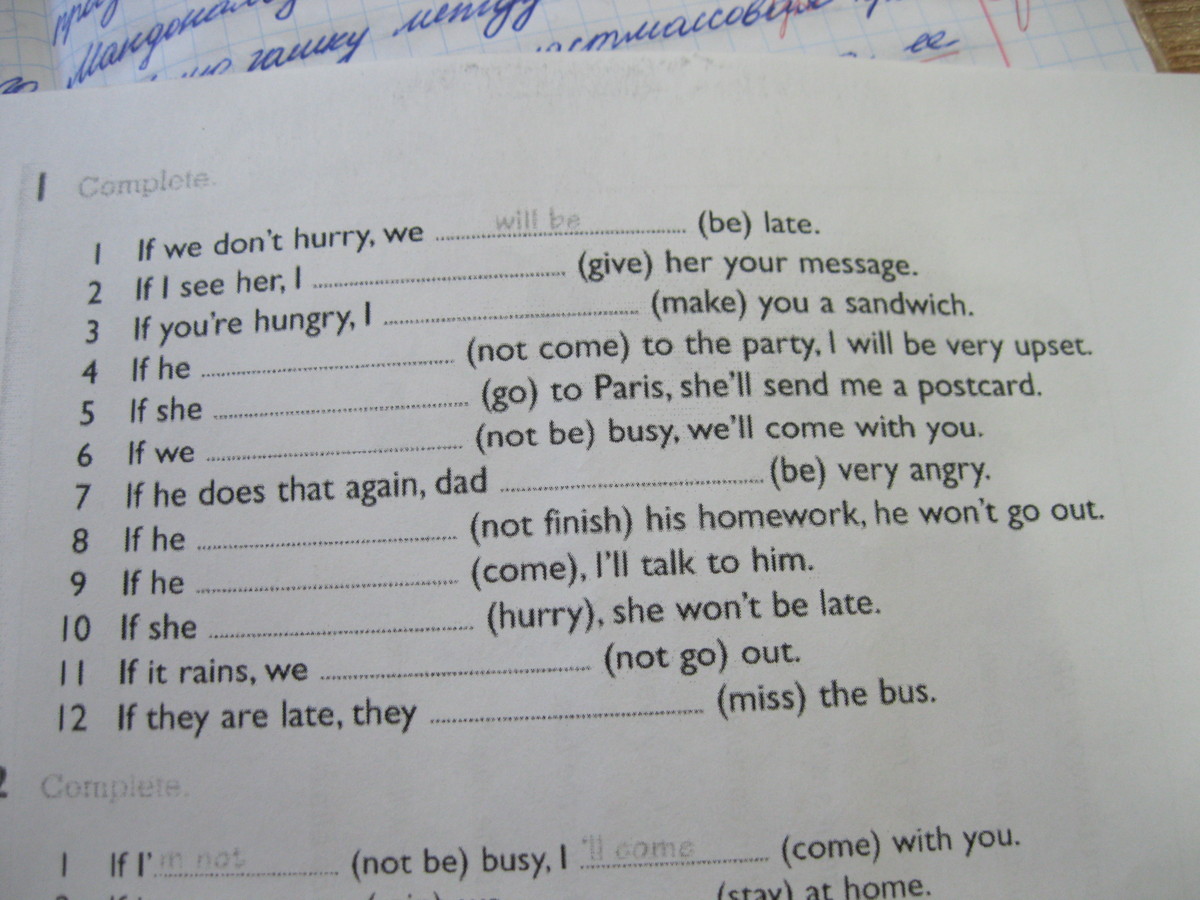 гайку между
ее
1 Complete.
1 If we don't hurry, we ......will be...... (be) late.
2 If I see her, I ............ (give) her your message.
3 If you're hungry, I ............ (make) you a sandwich.
4 If he ............ (not come) to the party, I will be very upset.
5 If she ............ (go) to Paris, she'll send me a postcard.
6 If we ............ (not be) busy, we'll come with you.
7 If he does that again, dad ............ (be) very angry.
8 If he ............ (not finish) his homework, he won't go out.
9 If he ............ (come), I'll talk to him.
10 If she ............ (hurry), she won't be late.
11 If it rains, we ............ (not go) out.
12 If they are late, they ............ (miss) the bus.
2 Complete.
1 If I'm not............ (not be) busy, I 'll come............ (come) with you.
(stay) at home.